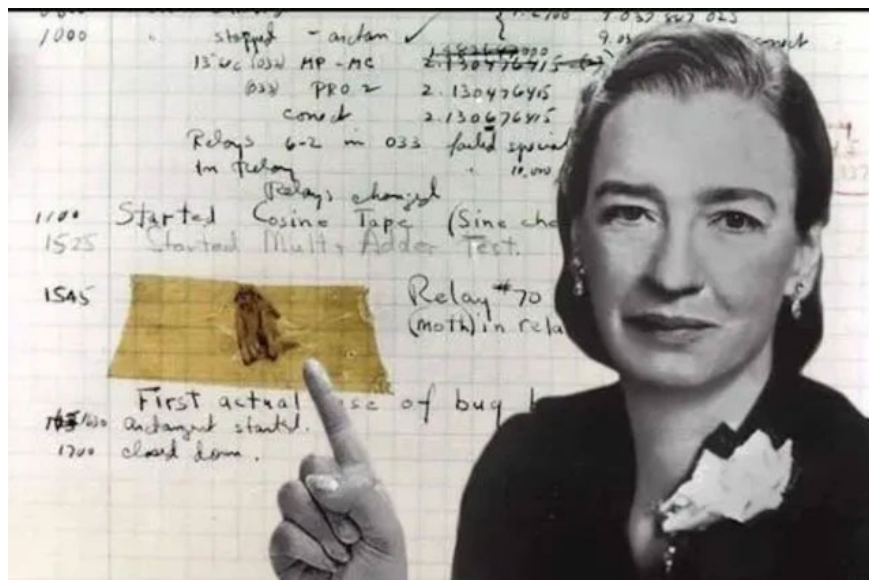 1000 " stopped - arctan ✓
13"UC (032) MP - MC 2.130476415
(033) PRO 2 2.130476415
conect 2.130676415
Relays 6-2 in 033 failed special
In Relay 10,000
Relays changed
1100 Started Cosine Tape (Sine che
1525 Started Mult + Adder Test.
1545 Relay #70
(moth) in rela
First actual se of bug b
1630 arctangent started.
1700 closed down.